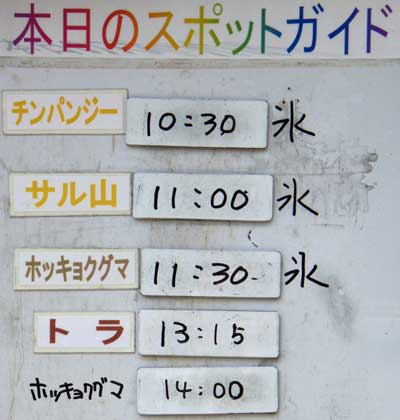 本日のスポットガイド
チンパンジー 10:30 氷
サル山 11:00 氷
ホッキョクグマ 11:30 氷
トラ 13:15
ホッキョクグマ 14:00